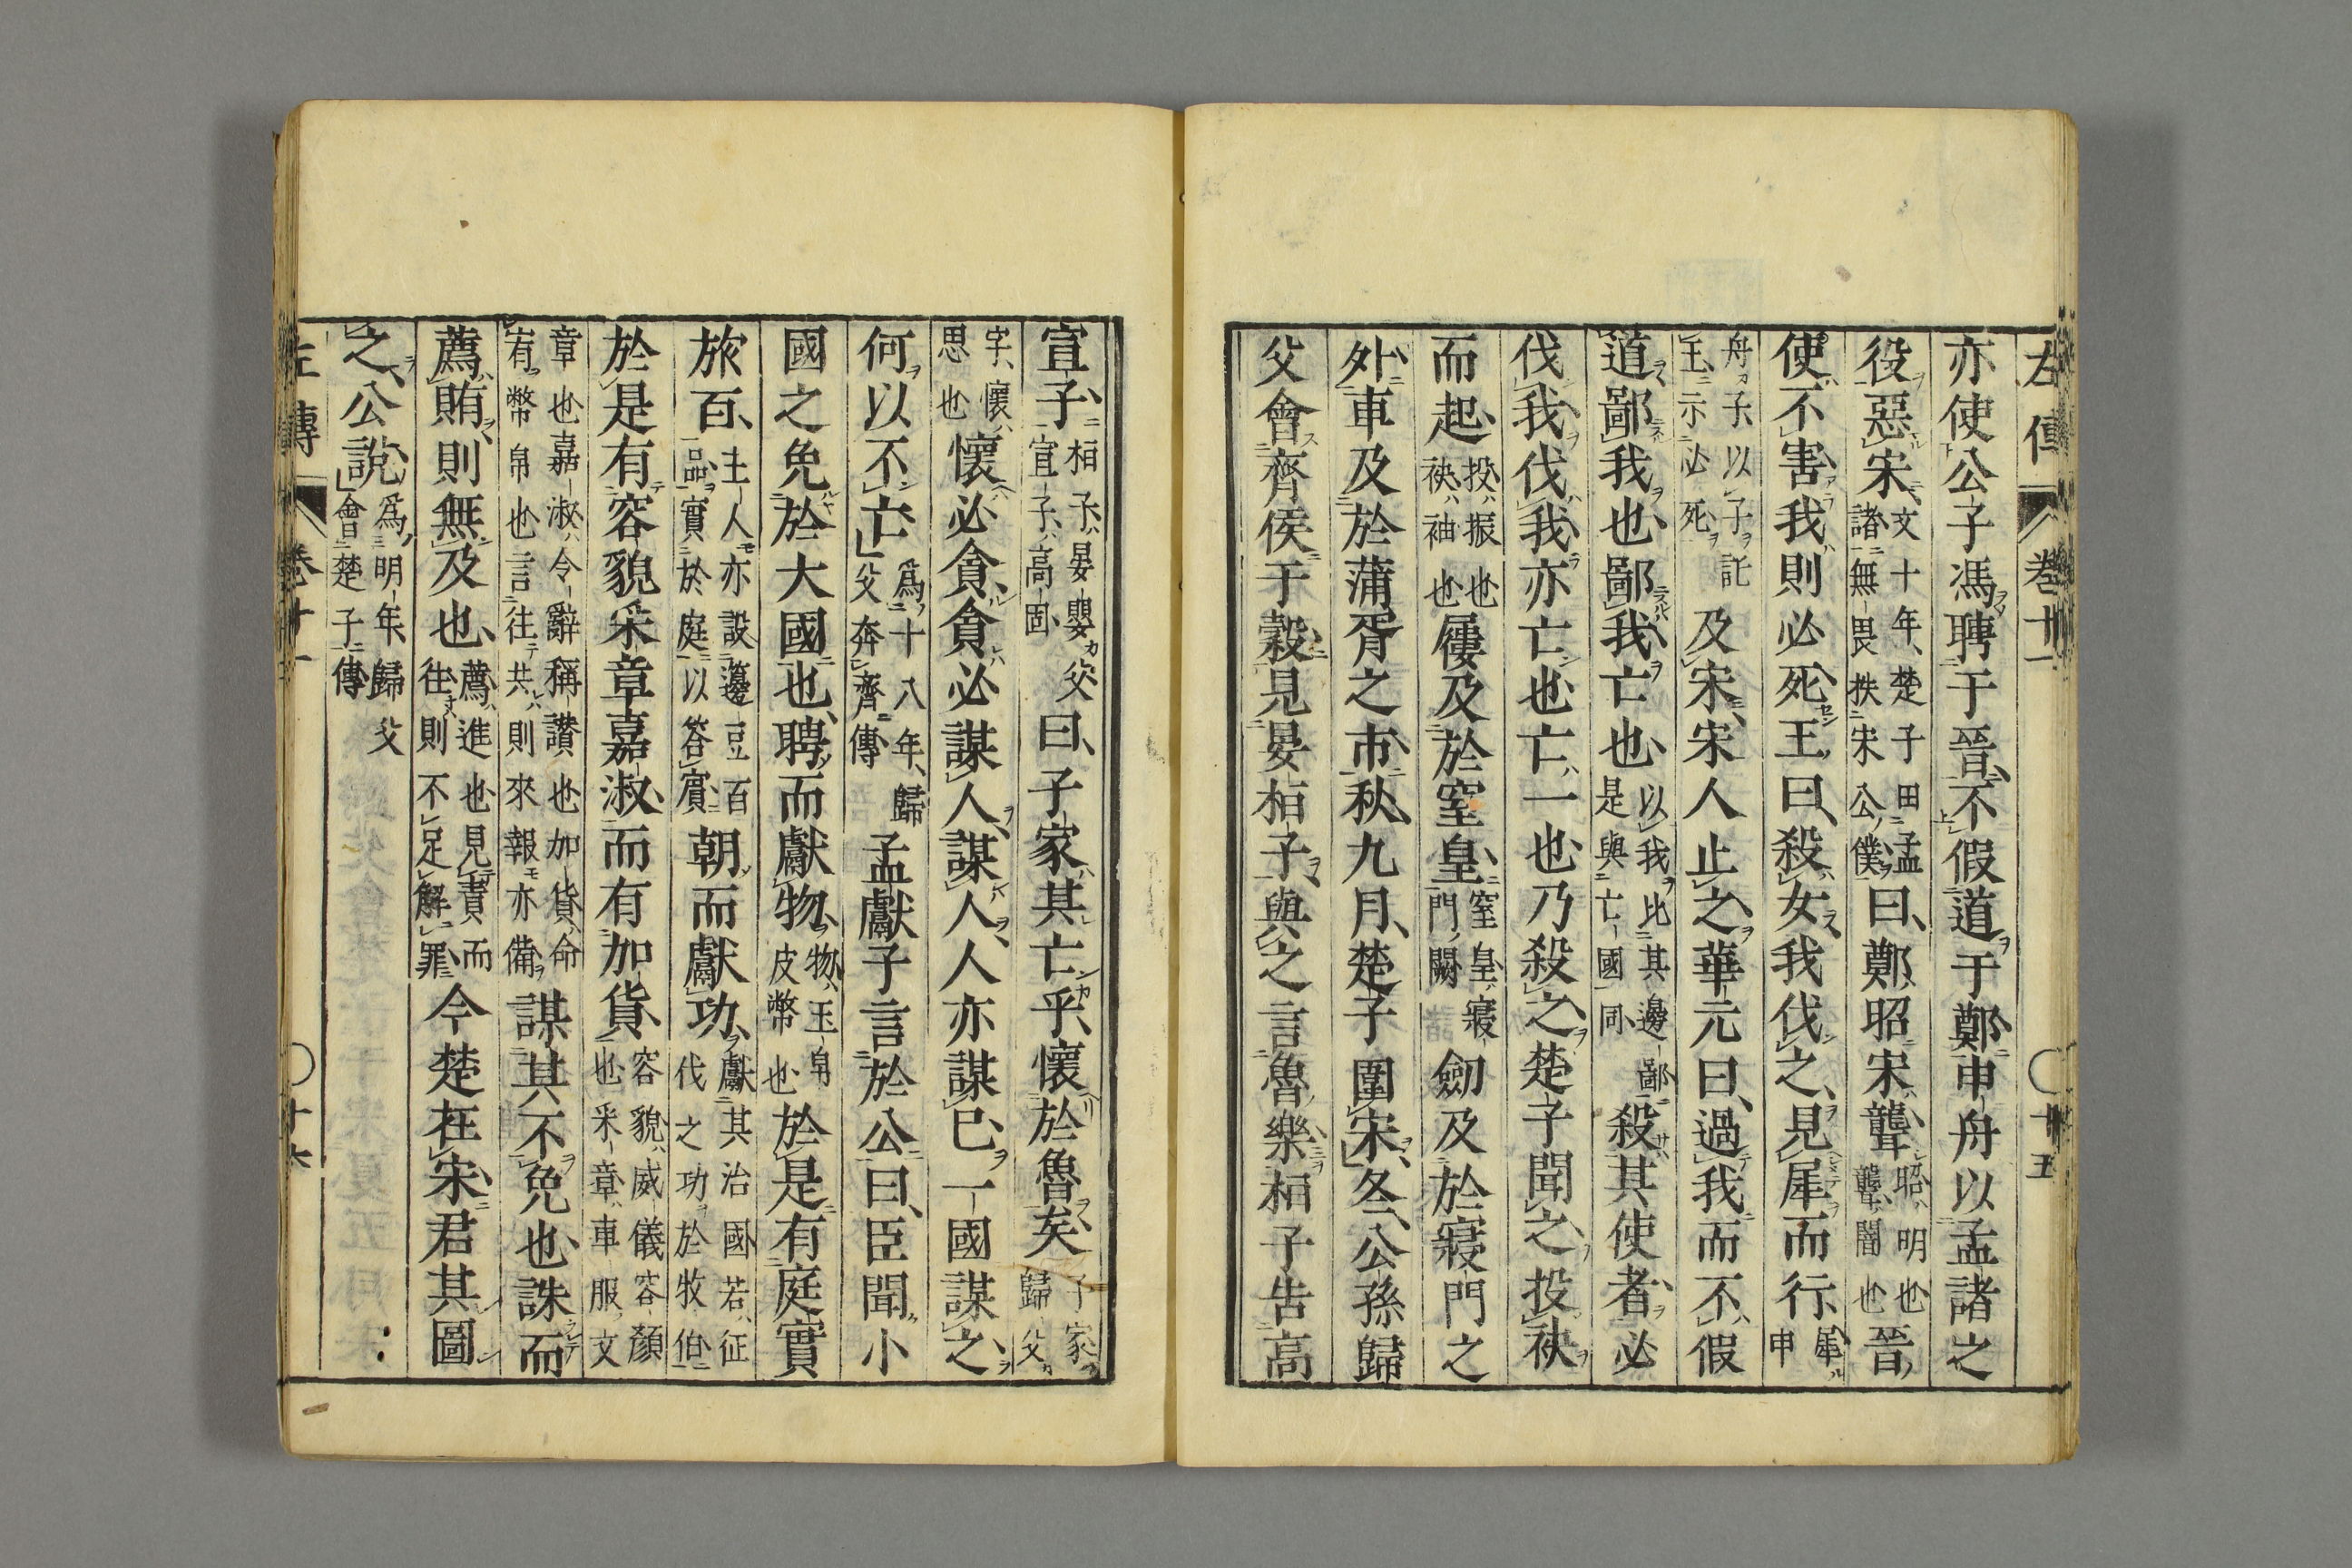 左傳 卷十一 〇十五
亦使公子馮聘于晉不假道于鄭申舟以孟諸之
役惡宋文十年楚子田孟諸無畏抶宋公僕曰鄭昭宋聾昭明也聾闇也晉
使不害我則必死王曰殺女我伐之見犀而行犀申
舟子以子託王示必死及宋宋人止之華元曰過我而不假
道鄙我也鄙我亡也以我比其邊鄙是與亡國同殺其使者必
伐我伐我亦亡也亡一也乃殺之楚子聞之投袂
而起投振也袂袖也屨及於窒皇窒皇寢門闕劒及於寢門之
外車及於蒲胥之市秋九月楚子圍宋冬公孫歸
父會齊侯于穀見晏桓子與之言魯樂桓子告高
宣子桓子晏嬰父宣子高固曰子家其亡乎懷於魯矣子家歸父
字懷思也懷必貪貪必謀人謀人人亦謀已一國謀之
何以不亡爲十八年歸父奔齊傳孟獻子言於公曰臣聞小
國之免於大國也聘而獻物物玉帛皮幣也於是有庭實
旅百主人亦設籩豆百品實於庭以答賓朝而獻功獻其治國若征伐之功於牧伯
於是有容貌采章嘉淑而有加貨容貌威儀容顏也采章車服文
章也嘉淑令辭稱讃也加貨命宥幣帛也言往共則來報亦備謀其不免也誅而
薦賄則無及也薦進也見責而往則不足解罪今楚在宋君其圖
之公說爲明年歸父會楚子傳
左傳 卷十一 〇十六